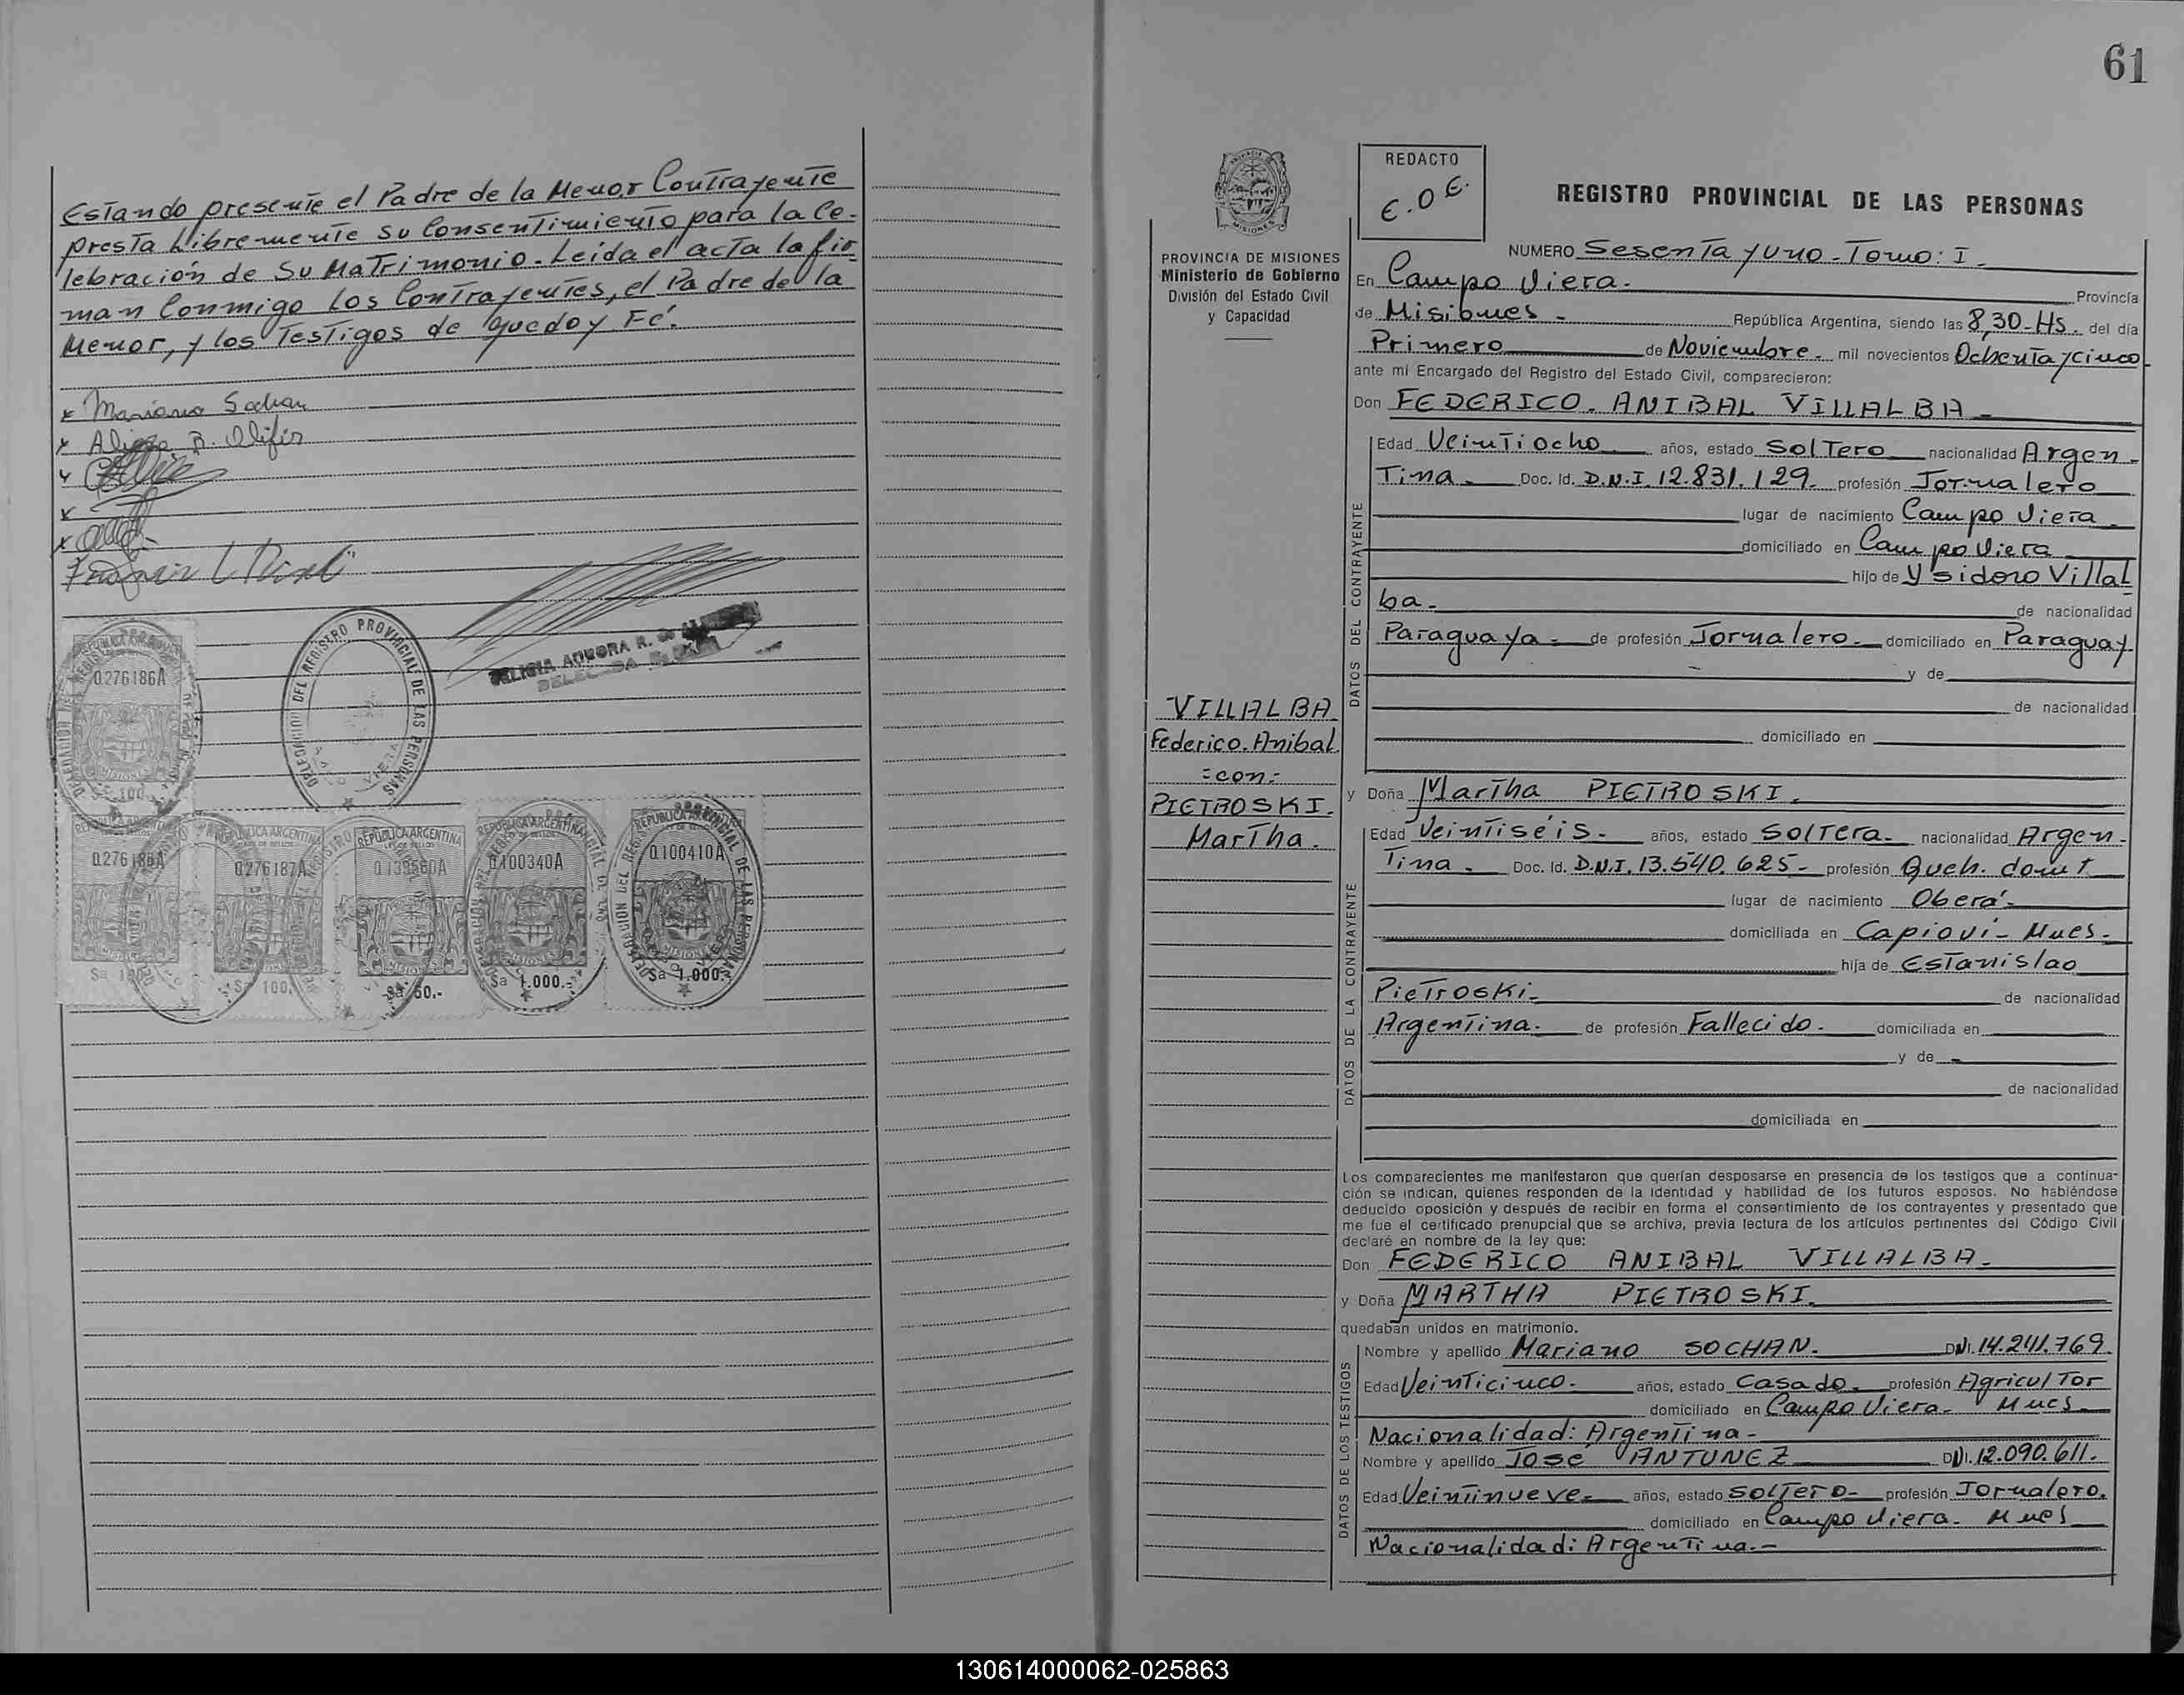 Estando presente el Padre de la Menor Contrayente
presta Libremente su Consentimiento para la Ce-
lebración de Su Matrimonio. Leída el acta la fir-
man Conmigo Los Contrayentes, el Padre de la
Menor, y los Testigos de que doy Fé.
x Mariano Sochan
x
x
x
x
REPUBLICA ARGENTINA
0.276186A
MISIONES
$a 100
DELEGACION DEL REGISTRO PROVINCIAL DE LAS PERSONAS
CAMPO VIERA
AURORA R. de
0.276187A
$a 100.
REPUBLICA ARGENTINA
$a 50.-
REPUBLICA ARGENTINA
0.100340A
$a 1.000.-
REPUBLICA ARGENTINA
0.100410A
$a 1.000.-
61
PROVINCIA DE MISIONES
Ministerio de Gobierno
División del Estado Civil
y Capacidad
VILLALBA
Federico. Anibal.
=con=
PIETROSKI.
Martha.
REDACTO
E.O.E.
REGISTRO PROVINCIAL DE LAS PERSONAS
NUMERO Sesenta y uno - Tomo: I -
En Campo Viera. Provincia
de Misiones - República Argentina, siendo las 8,30-Hs. del día
Primero de Noviembre. mil novecientos Ochenta y cinco
ante mí Encargado del Registro del Estado Civil, comparecieron:
Don FEDERICO. ANIBAL VILLALBA -
DATOS DEL CONTRAYENTE
Edad Veintiocho años, estado Soltero nacionalidad Argen-
Tina. Doc. Id. D.N.I. 12.831.129. profesión Jornalero
lugar de nacimiento Campo Viera.
domiciliado en Campo Viera
hijo de Ysidoro Villal
ba. de nacionalidad
Paraguaya - de profesión Jornalero - domiciliado en Paraguay
y de
de nacionalidad
domiciliado en
y Doña Martha PIETROSKI.
DATOS DE LA CONTRAYENTE
Edad Veintiséis - años, estado Soltera - nacionalidad Argen-
Tina - Doc. Id. D.N.I. 13.540.625 - profesión Queh. domt.
lugar de nacimiento Oberá -
domiciliada en Capioví - Mnes -
hija de Estanislao
Pietroski - de nacionalidad
Argentina - de profesión Fallecido - domiciliada en
y de -
de nacionalidad
domiciliada en
Los comparecientes me manifestaron que querían desposarse en presencia de los testigos que a continua-
ción se indican, quienes responden de la identidad y habilidad de los futuros esposos. No habiéndose
deducido oposición y después de recibir en forma el consentimiento de los contrayentes y presentado que
me fue el certificado prenupcial que se archiva, previa lectura de los artículos pertinentes del Código Civil
declaré en nombre de la ley que:
Don FEDERICO ANIBAL VILLALBA -
y Doña MARTHA PIETROSKI.
quedaban unidos en matrimonio.
DATOS DE LOS TESTIGOS
Nombre y apellido Mariano SOCHAN. DNI. 14.241.769.
Edad Veinticinco - años, estado Casado. profesión Agricultor
domiciliado en Campo Viera - Mnes
Nacionalidad: Argentina -
Nombre y apellido José ANTUNEZ DNI. 12.090.611.
Edad Veintinueve - años, estado Soltero - profesión Jornalero.
domiciliado en Campo Viera - Mnes
Nacionalidad: Argentina. -
130614000062-025863